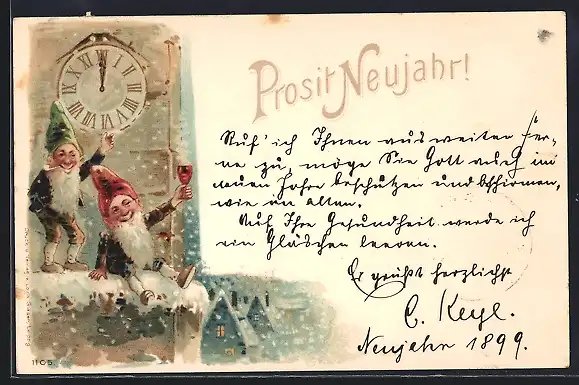 Prosit Neujahr!
XII I II III IIII V VI VII VIII IX X XI
Ruf' ich Ihnen aus weiter Fer-
ne zu, möge Sie Gott auch im
neuen Jahre beschützen und beschirmen,
wie im alten.
Auf Ihre Gesundheit werde ich
ein Gläschen leeren.
Es grüßt herzlichst
C. Keyl.
Neujahr 1899.
1105